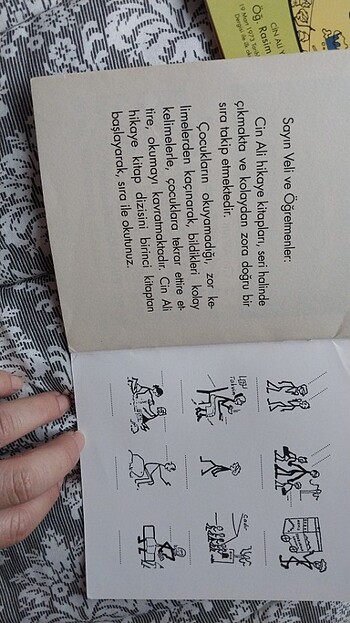 CİN ALİ
Öğ. Rasim
Sayın Veli ve Öğretmenler:
Cin Ali hikaye kitapları, seri halinde
çıkmakta ve kolaydan zora doğru bir
sıra takip etmektedir.
Çocukların okuyamadığı, zor ke-
limelerden kaçınarak, bildikleri kolay
kelimelerle, çocuklara tekrar ettire et-
tire, okumayı kavratmaktadır. Cin Ali
hikaye kitap dizisini birinci kitaptan
başlayarak, sıra ile okutunuz.